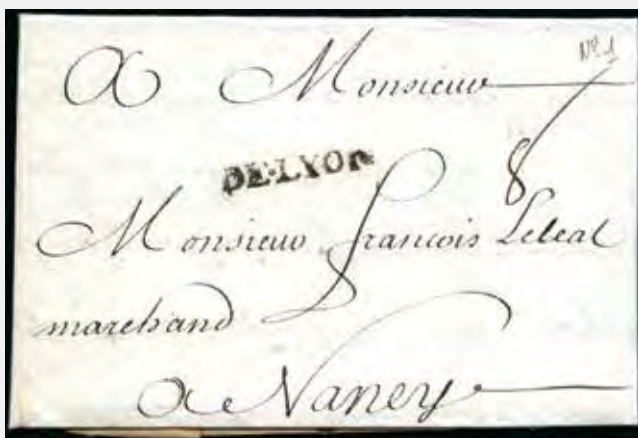 N° 1
A Monsieur
DE·LYON
8
Monsieur francois Leleal
marchand
a Nancy